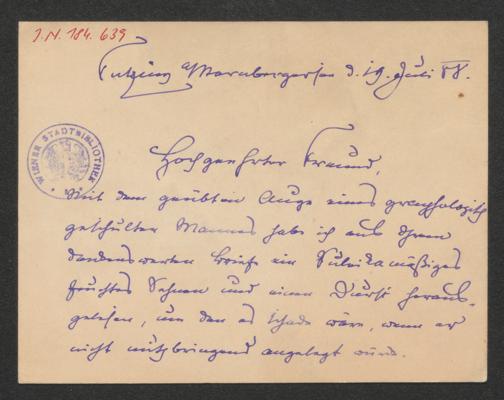 J.N. 184.639
Tutzing a/Starnbergersee d. 19. Juli 88.
WIENER STADTBIBLIOTHEK
Hochgeehrter Freund,
Mit dem geübten Auge eines graphologisch
geschulten Mannes habe ich aus Ihrem
dankenswerten Briefe ein
feuchtes Sehnen und einen Durst heraus-
gelesen, um den es schade wäre, wenn er
nicht nutzbringend angelegt würde.